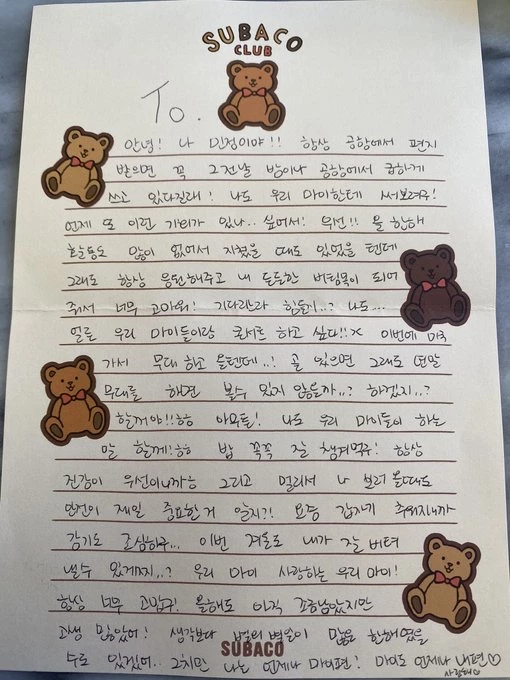 SUBACO
CLUB
To.
안녕! 나 민정이야!! 항상 공항에서 편지
받으면 꼭 그전날 밤이나 공항에서 급하게
쓰고 있다길래! 나도 우리 마이한테 써보려우!
언제 또 이런 기회가 있나.. 싶어서! 우선!! 올 한해
활동도 많이 없어서 지쳤을 때도 있었을 텐데
그래도 항상 응원해주고 내 든든한 버팀목이 되어
줘서 너무 고마워! 기다리느라 힘들지..? 나도...
얼른 우리 마이들이랑 콘서트 하고 싶다!!x 이번에 미국
가서 무대 하고 올텐데..! 곧 있으면 그래도 연말
무대를 해면 볼수 있지 않을까..? 하겠지..?
할꺼야!!흥 아무튼! 나도 우리 마이들이 하는
말 할게!흥 밥 꼭꼭 잘 챙겨먹구! 항상
건강이 우선이니까능 그리고 멀리서 나 보러 올때도
안전이 제일 중요한거 알지?! 요즘 갑자기 추워지니까
감기도 조심하구... 이번 겨울도 내가 잘 버텨
낼수 있게찌..? 우리 마이 사랑하는 우리 마이!
항상 너무 고맙구! 올해도 아직 조금남았지만
고생 많았어! 생각보다 별의 별일이 많은 한해였을
수도 있겠어.. 그치만 나는 언제나 마이편! 마이도 언제나 내편♡
사랑해♡
SUBACO